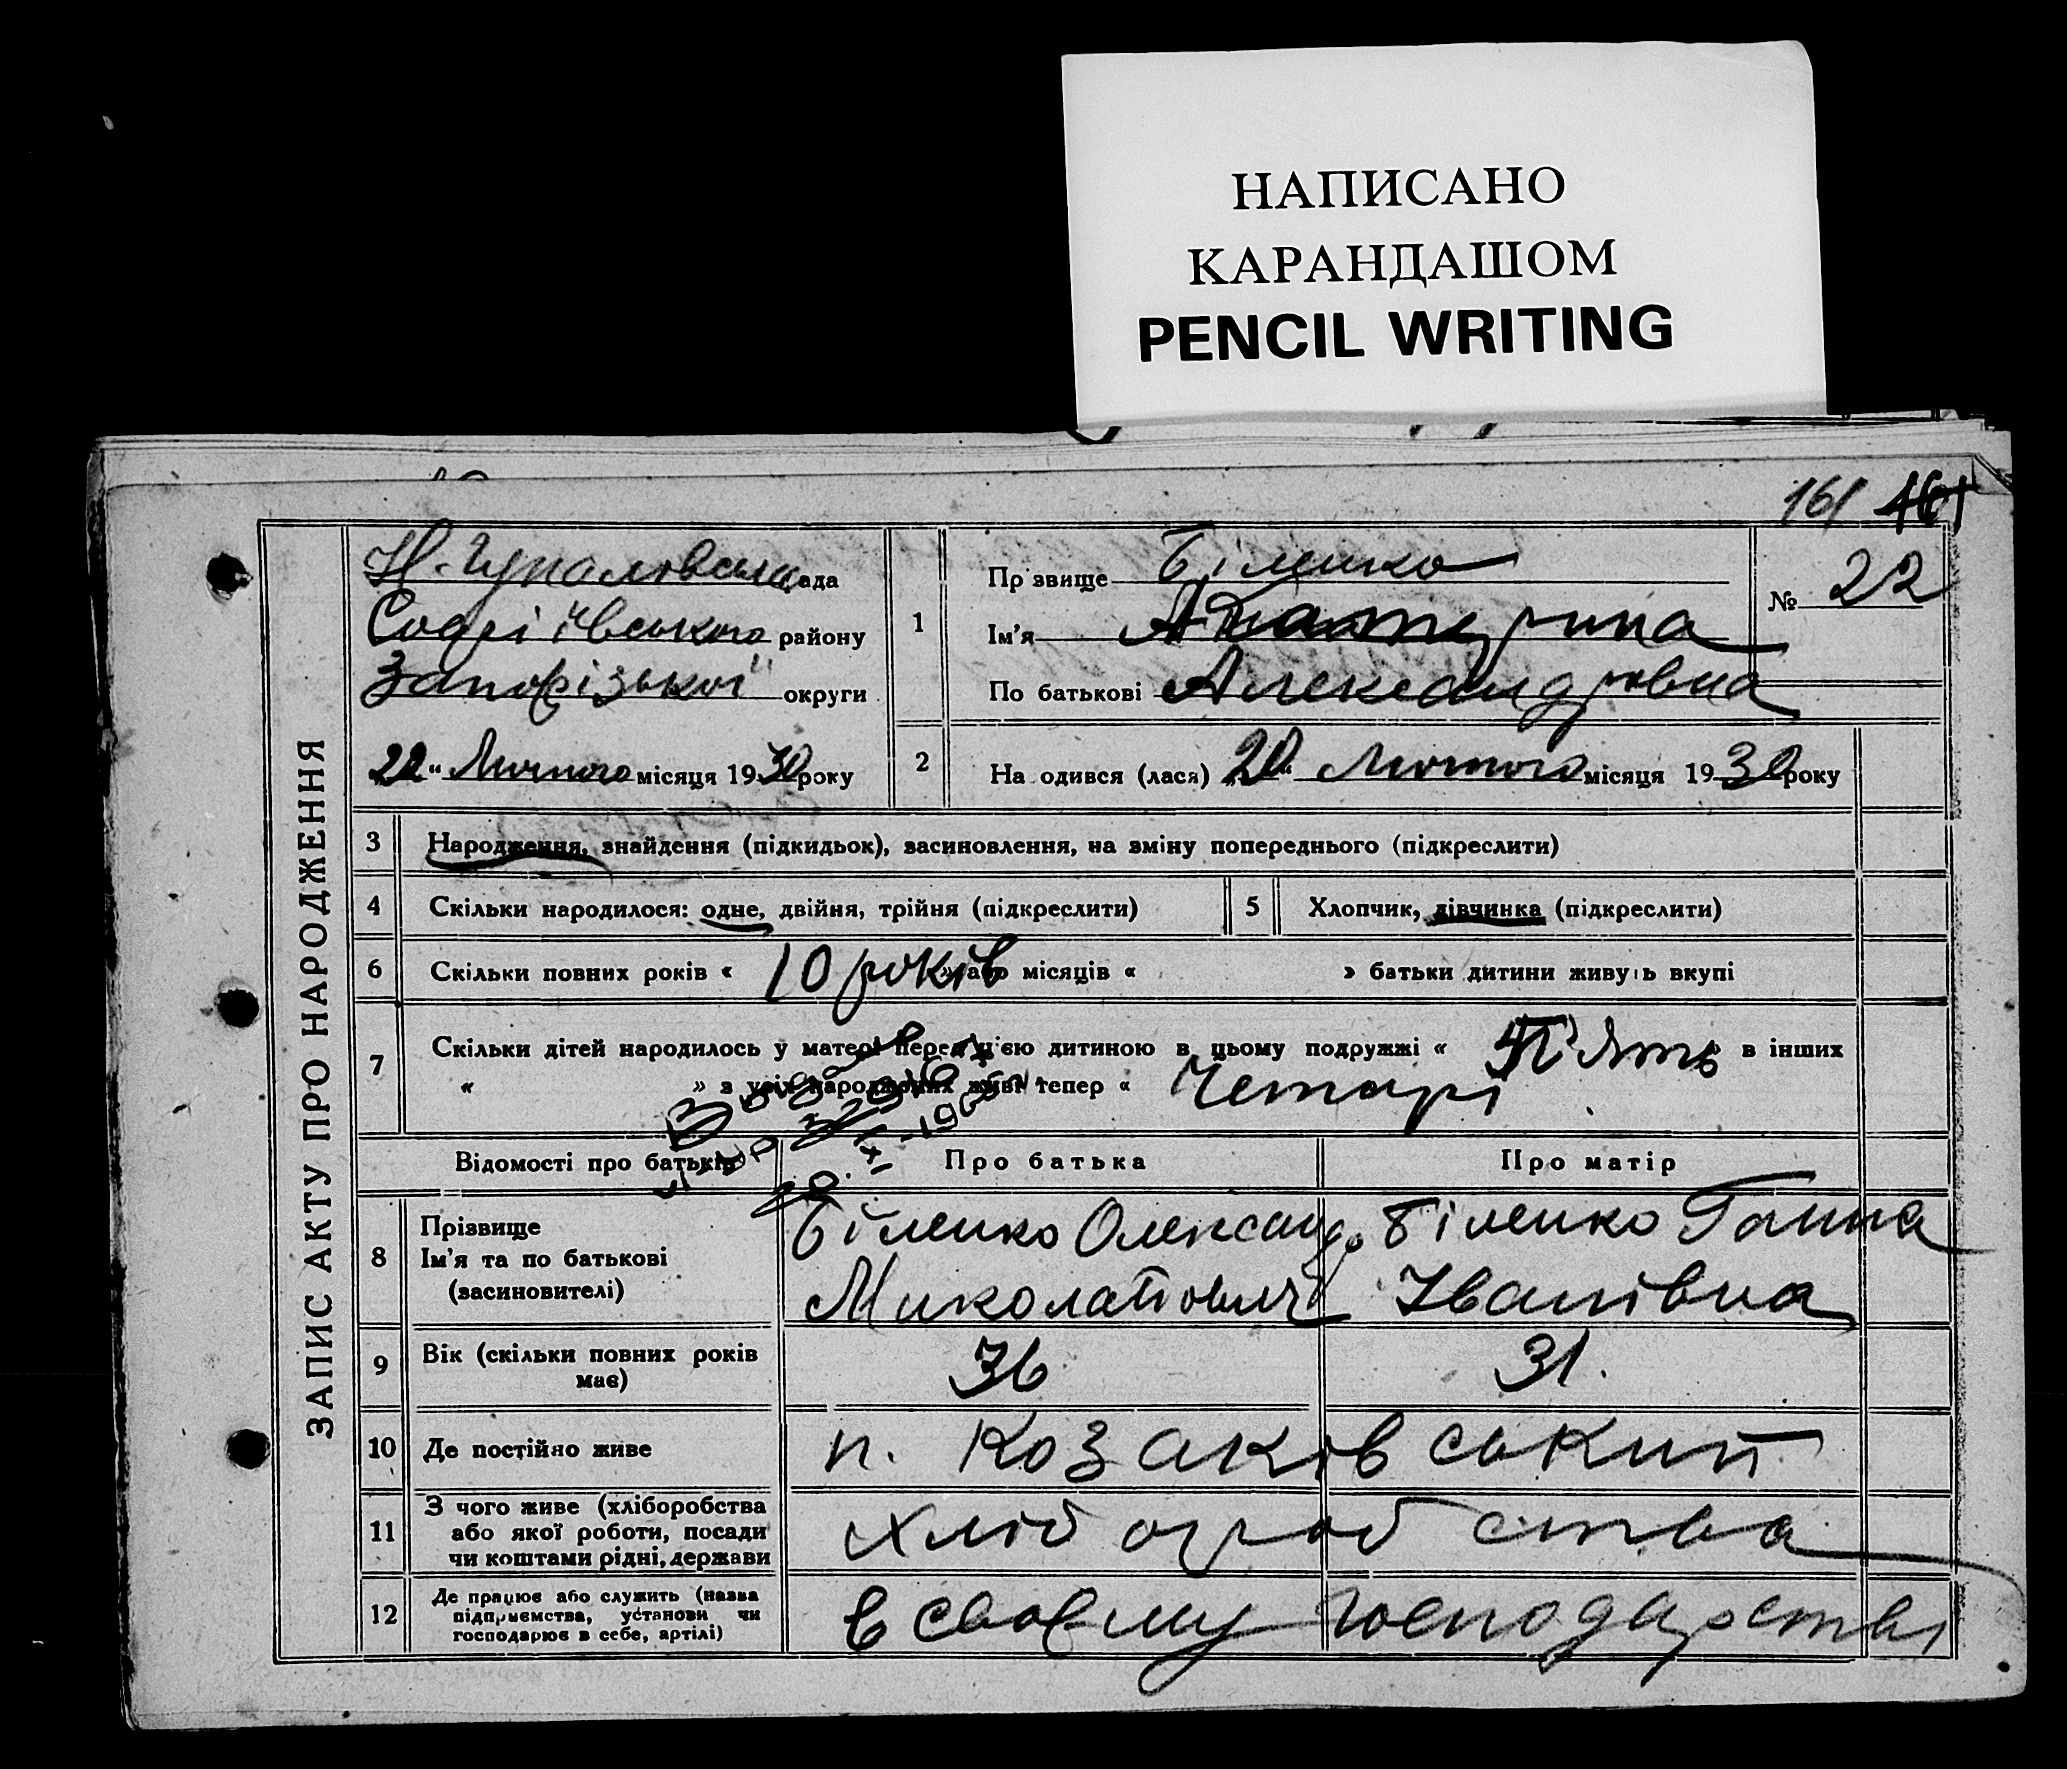 НАПИСАНО
КАРАНДАШОМ
PENCIL WRITING
161 161
ЗАПИС АКТУ ПРО НАРОДЖЕННЯ
ада
району
Запорізької округи
22 “ Лютого місяця 1930 року
1 Прізвище Біленко
Ім’я
По батькові Александровна
№ 22
2 На одився (лася) 20 “ Лютого місяця 1930 року
3 Народження, знайдення (підкидьок), засиновлення, на зміну попереднього (підкреслити)
4 Скільки народилося: одне, двійня, трійня (підкреслити) 5 Хлопчик, дівчинка (підкреслити)
6 Скільки повних років « 10 років » або місяців « » батьки дитини живуть вкупі
7 Скільки дітей народилось у матері перед ц’єю дитиною в цьому подружжі « П’ять в інших
« » з усіх народжених живі тепер « Четарі
Відомості про батьків Про батька Про матір
8 Прізвище
Ім’я та по батькові
(засиновителі)
Біленко Олександр
Миколайович
Біленко Ганна
Іванівна
9 Вік (скільки повних років
має)
36 31.
10 Де постійно живе п. Козаківський
11 З чого живе (хліборобства
або якої роботи, посади
чи коштами рідні, держави
хліборобства
12 Де працює або служить (назва
підприємства, установи чи
господарює в себе, артілі)
в своєму господарстві